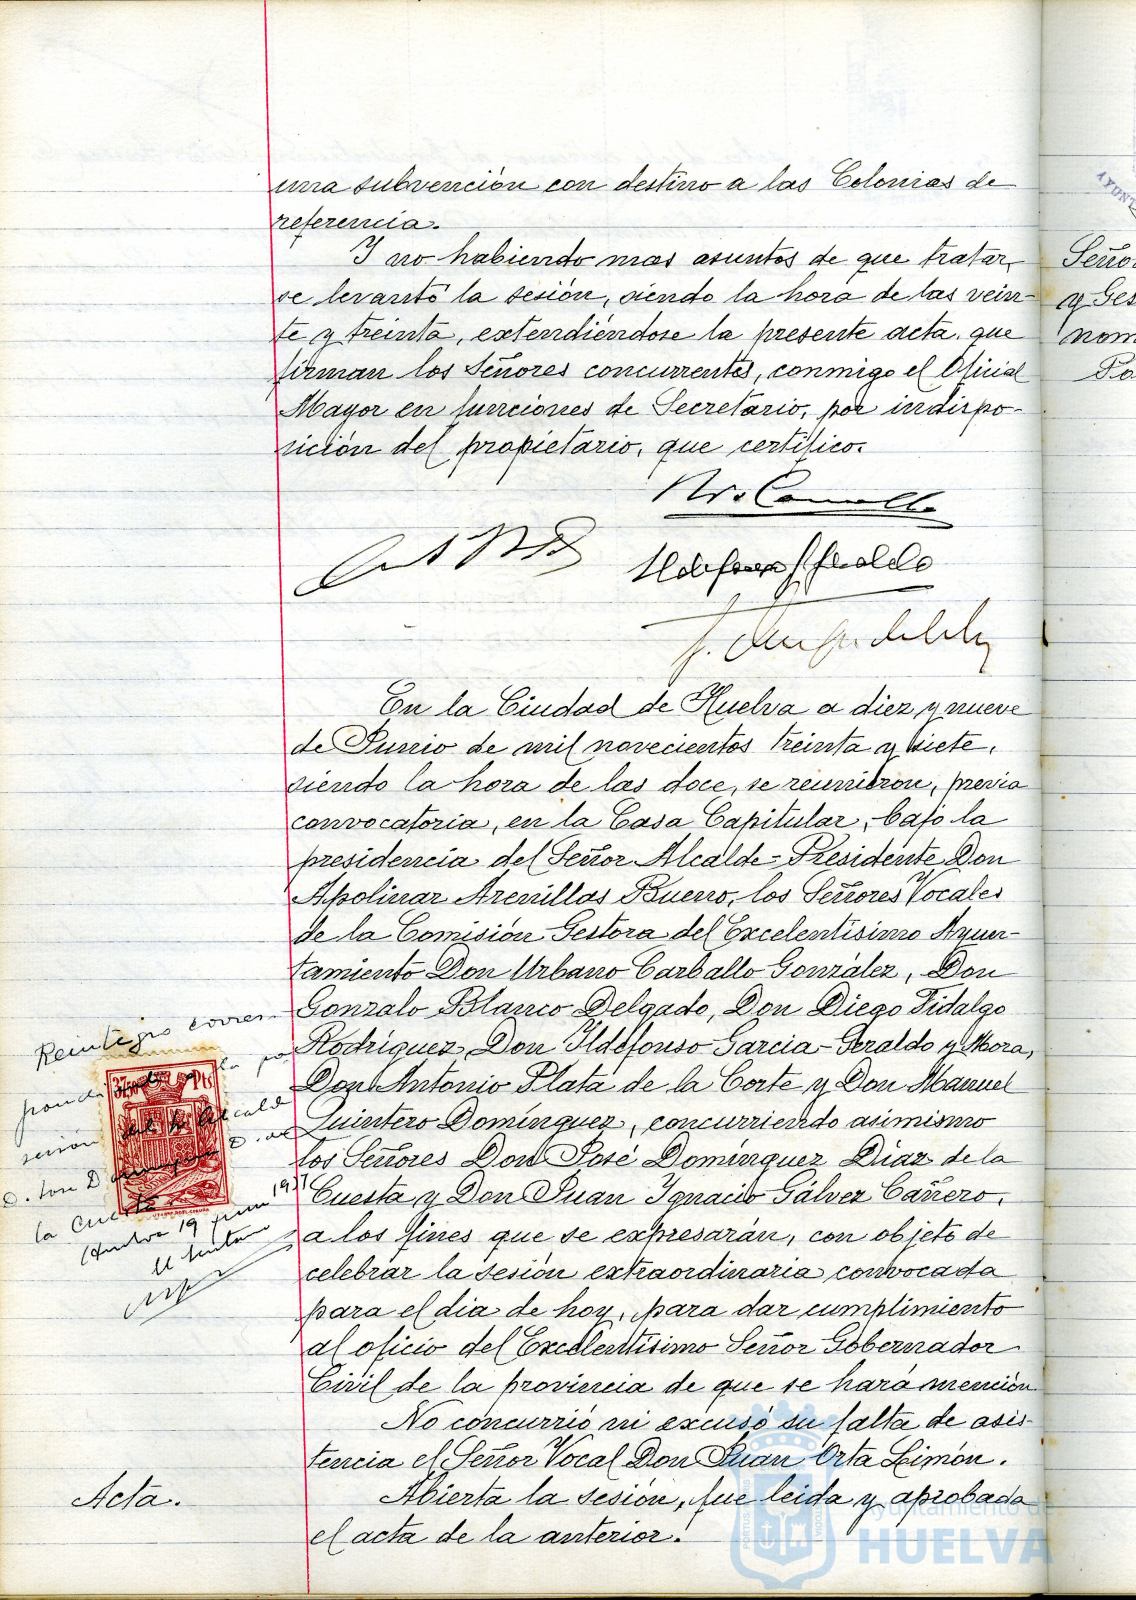 una subvención con destino a las Colonias de
referencia.
Y no habiendo mas asuntos de que tratar,
se levantó la sesión, siendo la hora de las vein-
te y treinta, extendiéndose la presente acta, que
firman los Señores concurrentes, conmigo el Oficial
Mayor en funciones de Secretario, por indispo-
sición del propietario, que certifico.
En la Ciudad de Huelva a diez y nueve
de Junio de mil novecientos treinta y siete,
siendo la hora de las doce, se reunieron, previa
convocatoria, en la Casa Capitular, bajo la
presidencia del Señor Alcalde-Presidente Don
Apolinar Arenillas Bueno, los Señores Vocales
de la Comisión Gestora del Excelentísimo Ayun-
tamiento Don Urbano Carballo González, Don
Gonzalo Blanco Delgado, Don Diego Fidalgo
Rodríguez, Don Ildefonso García-Geraldo y Mora,
Don Antonio Plata de la Corte y Don Manuel
Quintero Domínguez, concurriendo asimismo
los Señores Don José Domínguez Díaz de la
Cuesta y Don Juan Ignacio Gálvez Cañero,
a los fines que se expresarán, con objeto de
celebrar la sesión extraordinaria convocada
para el dia de hoy, para dar cumplimiento
al oficio del Excelentísimo Señor Gobernador
Civil de la provincia de que se hará mención
No concurrió ni excusó su falta de asis-
tencia el Señor Vocal Don Juan Orta Limón.
Abierta la sesión, fue leida y aprobada
el acta de la anterior.
Reintegro corres-
a la po
sesión de la Alcald
la Cuesta
Huelva 19 junio 1937
Acta.
Seño
y Ges
nom
Po
AYUNT
Ayuntamiento de
HUELVA